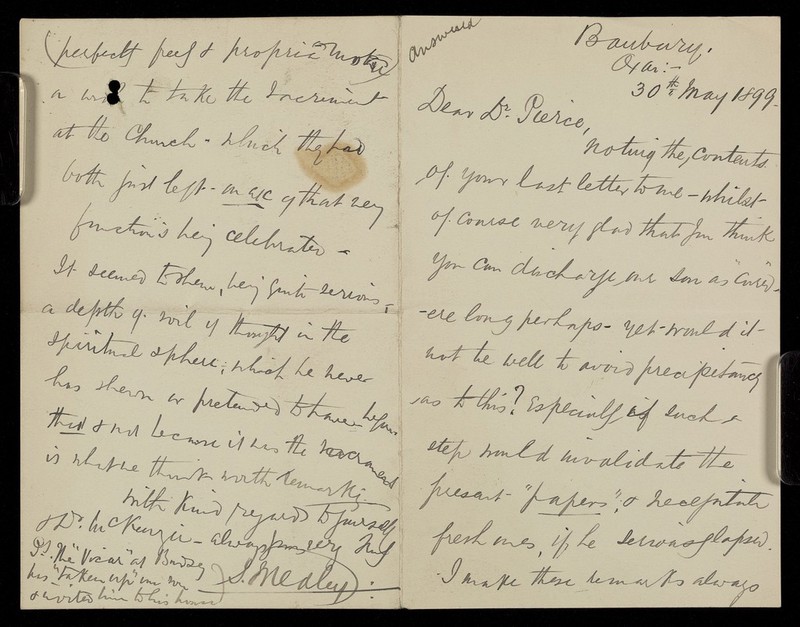 answered
Banbury.
Oxon:-
30th May 1899.
Dear Dr. Pierce,
Noting the contents
of your last letter to me - whilst
of course very glad that you think
you can discharge our son as "cured",
-ere long perhaps - yet - would it
not be well to avoid precipitancy
as to this? Especially if such a
step would invalidate the
present "papers", & necessitate
fresh ones, if he seriously relapsed.
I make these remarks always
(perfectly free & propria motu)
a wish to take the Sacrament
at the Church - which they had
both just left - on a/c of that very
function's being celebrated -
It seemed to shew, being quite serious,
a depth of soil of thought in the
Spiritual sphere, which he never
has shewn or pretended to have before
this & not because it was the Sacrament
is what we think worth remarking.
With kind regards to yourself
& Dr. McKenzie - always yours very truly
S. Medley
P.S. The "Vicar" at
has "taken up" our son
& invited him to his house